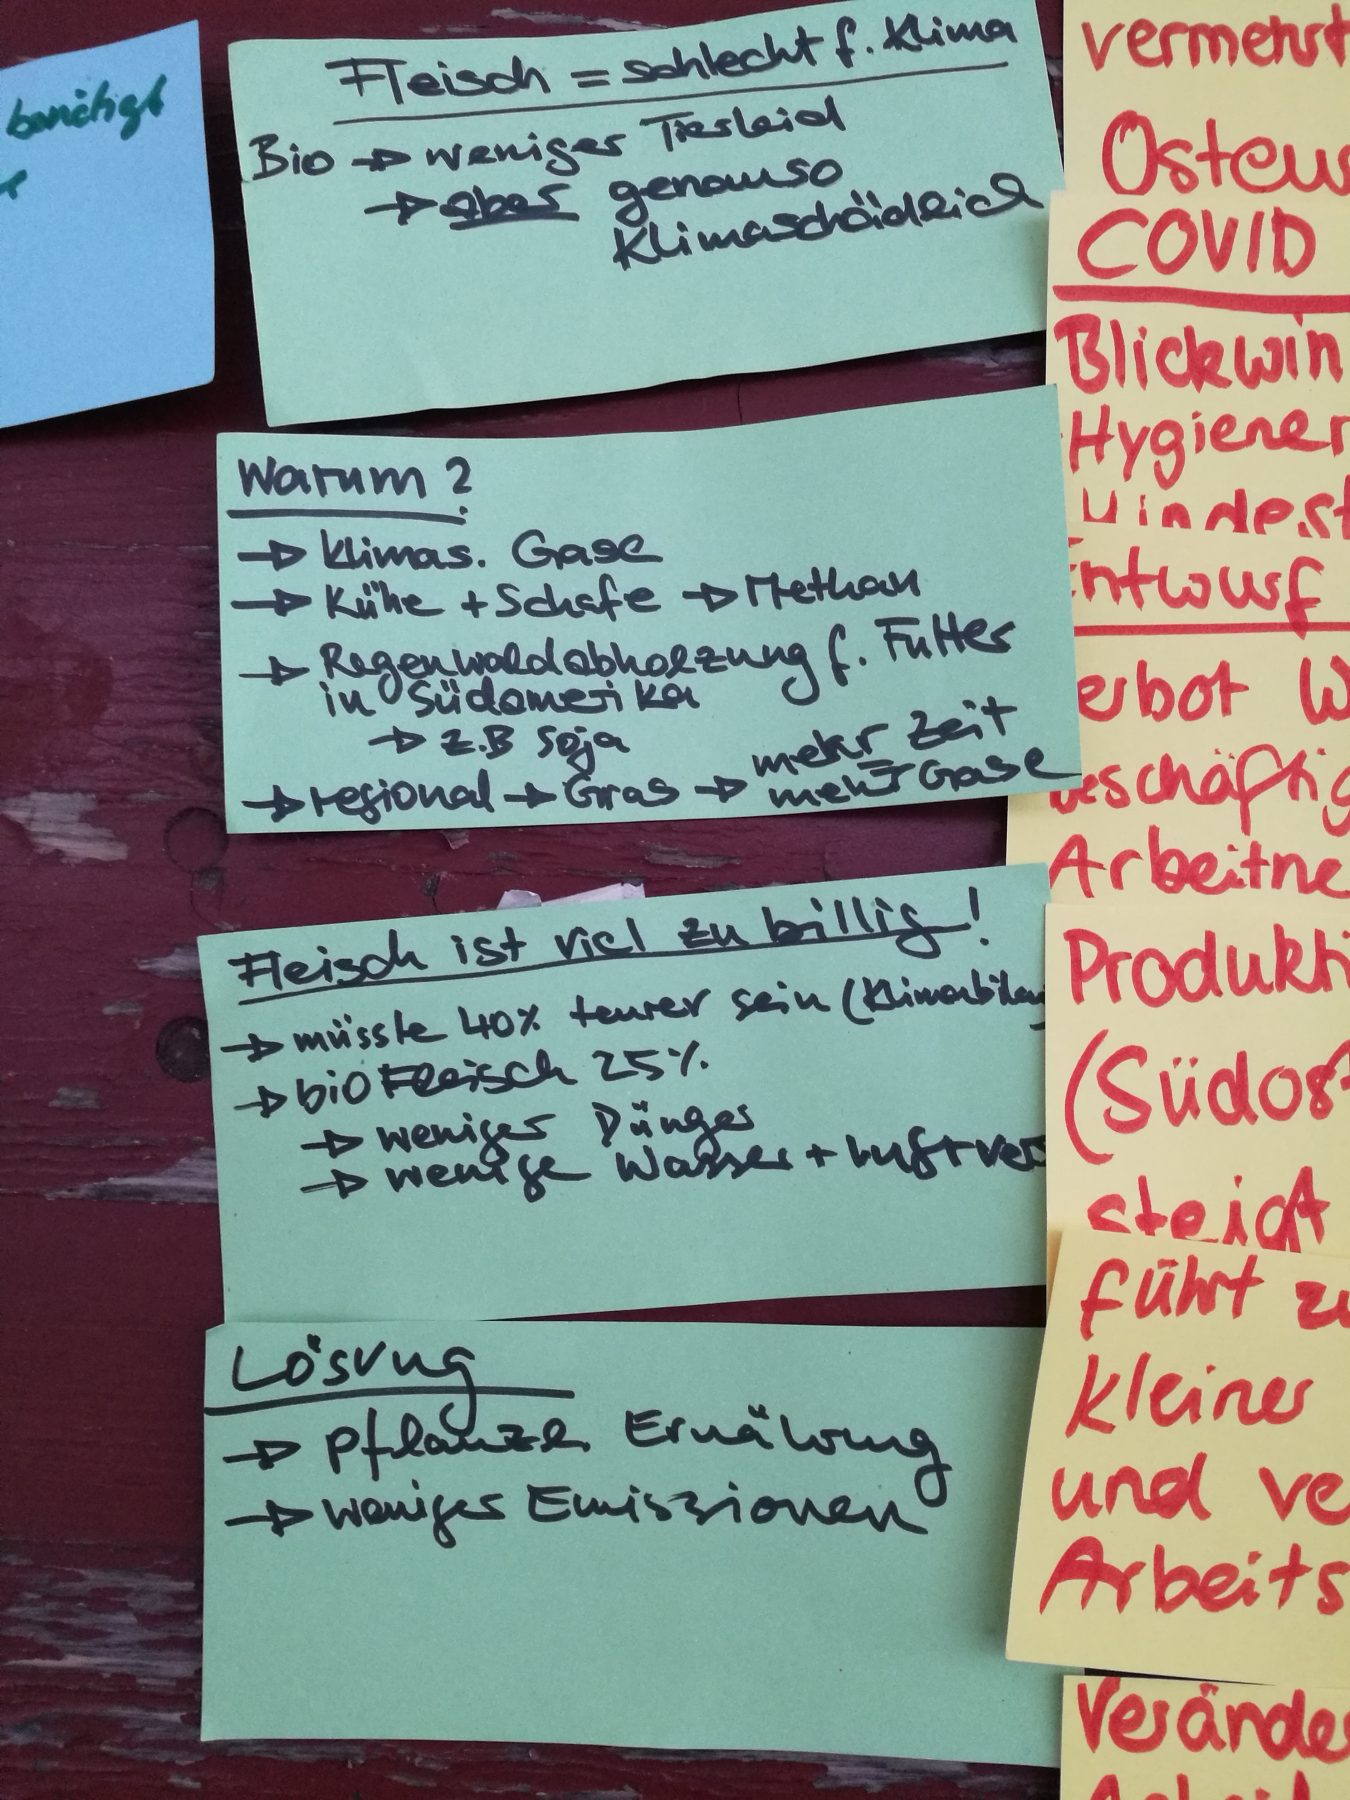 benötigt
Fleisch = schlecht f. Klima
Bio → weniger Tierleid
→ aber genauso
Klimaschädlich
Warum?
→ klimas. Gase
→ Kühe + Schafe → Methan
→ Regenwaldabholzung f. Futter
in Südamerika
→ z.B Soja
→ regional → Gras → mehr Zeit
mehr Gase
Fleisch ist viel zu billig!
→ müsste 40% teurer sein (Klimabilanz
→ bio Fleisch 25%
→ weniger Dünger
→ wenige Wasser + Luftver
Lösung
→ pflanzl. Ernährung
→ weniger Emissionen
vermehrt
Osteu
COVID
Blickwin
Hygiener
Mindest
Entwurf
erbot W
beschäftig
Arbeitne
Produkti
(Südost
steigt
führt zu
kleiner
und ve
Arbeits
Veränder
Arbei